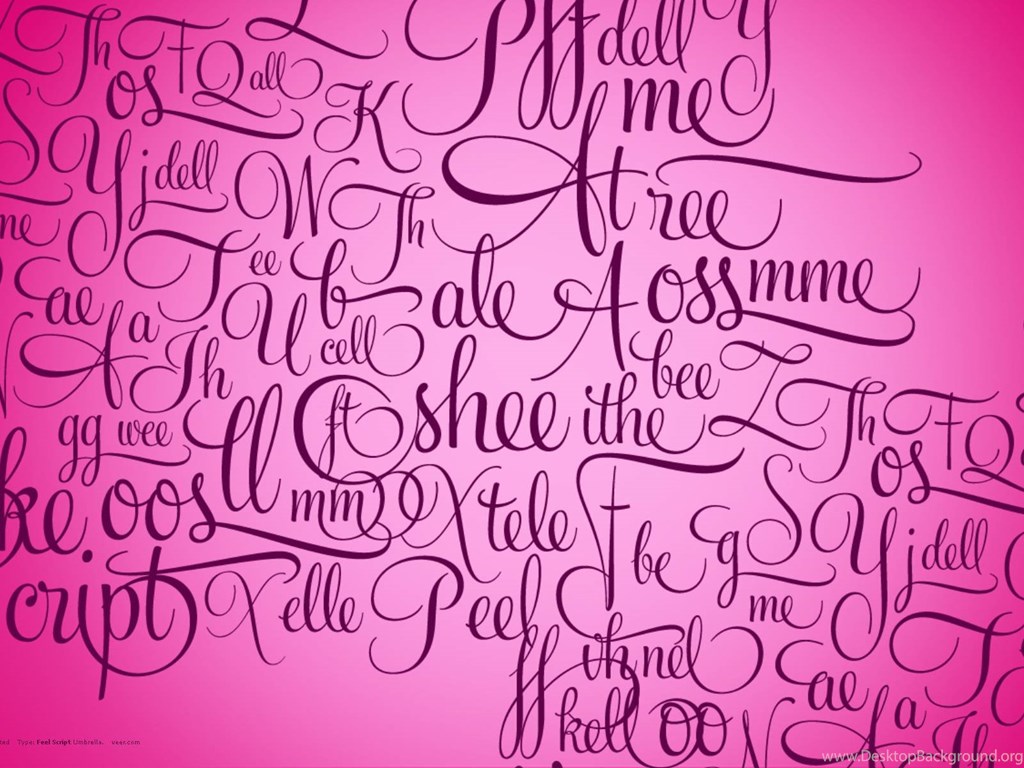 Th os F Q all K P ff dell y
me
S Y j dell W Th At ree
me T ee b ale A oss mme
ae a U cell
A Th bee Z
gg wee ll ft O shee ithe Th F Q
os
ke oos mm X tele be g S Y j dell
cript X elle P eel me T
ff nel ae a
koll oo A Th
Type: Feel Script Umbrella. veer.com
www.DesktopBackground.org